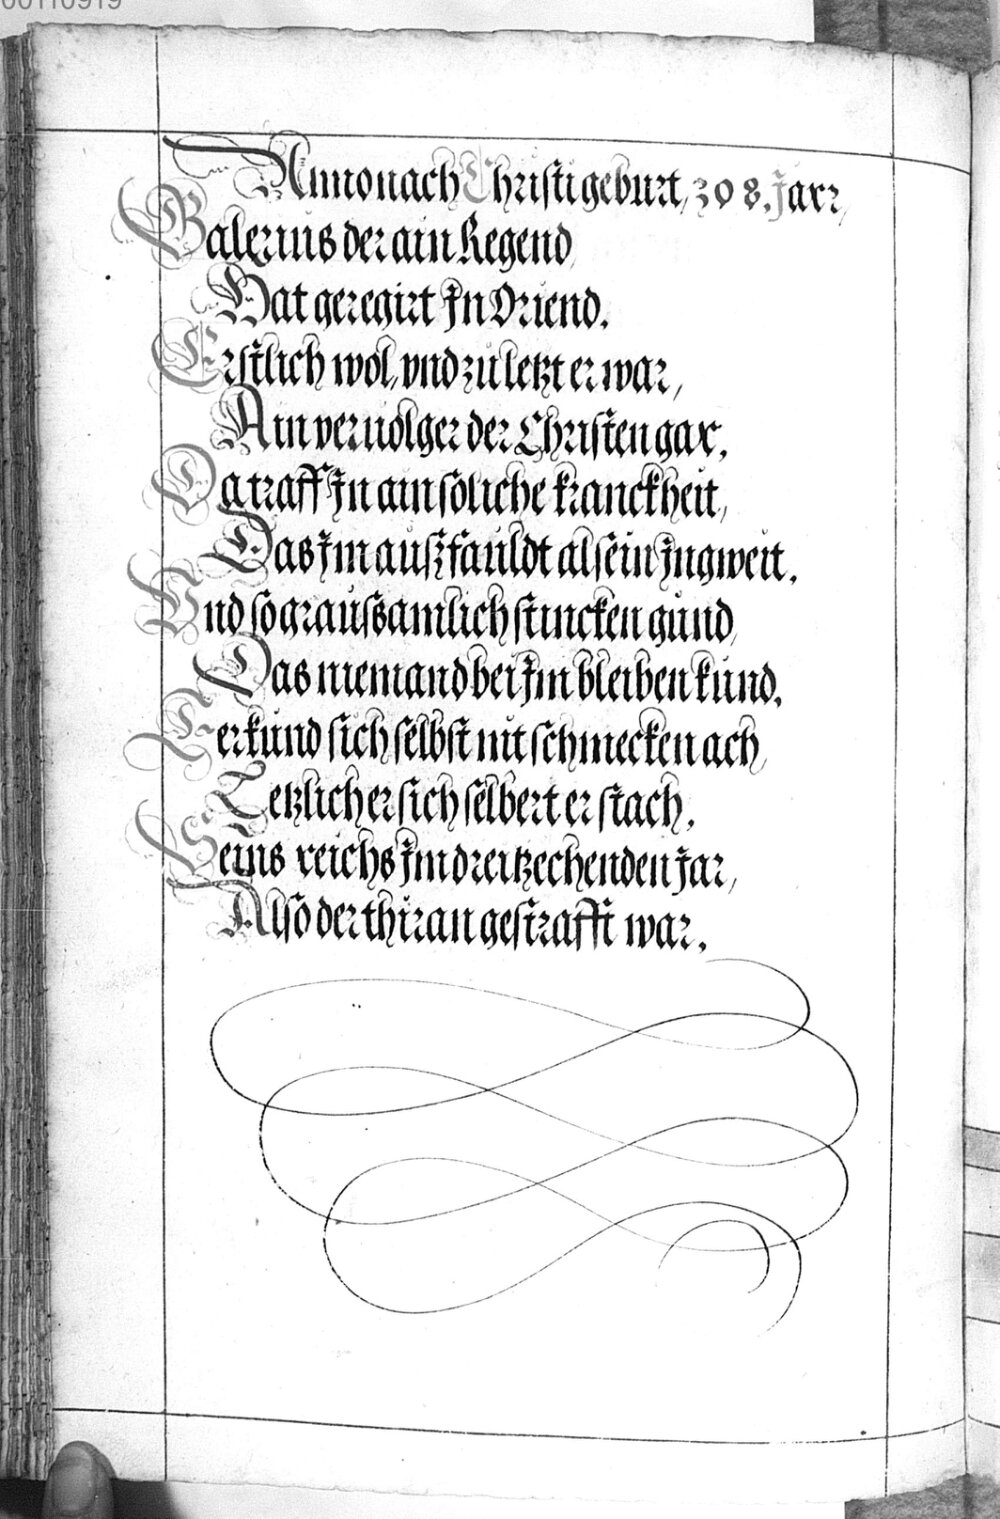 00110919
Anno nach Christi geburt, 308. Jarr,
Galerius der ain Regend,
Hat geregirt Jn Oriend.
Erstlich wol, vnd zu letzt er war,
Ain veruolger der Christen gar.
Da traff Jn ain söliche kranckheit,
Das Jm außfauldt als ein Jngweit.
Vnd so graussamlich stincken gund,
Das niemand bei Jm bleiben kund.
Er kund sich selbst nit schmecken ach,
Letzlich er sich selbert erstach.
Seins reichs Jm dreitzechenden Jar,
Also der thiran gestrafft war.